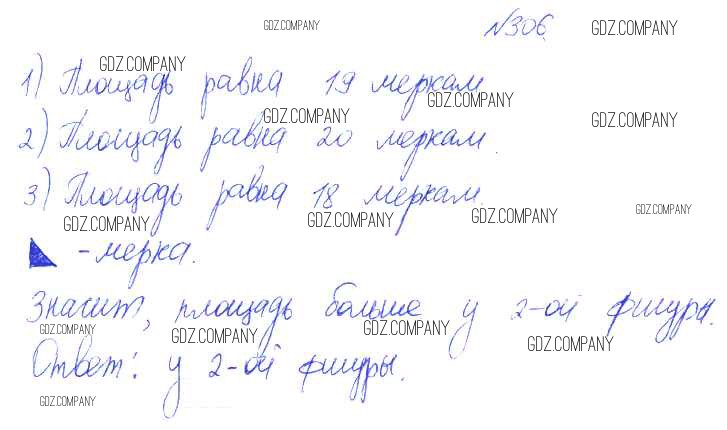 GDZ.COMPANY №306 GDZ.COMPANY
GDZ.COMPANY
1) Площадь равна 19 меркам
GDZ.COMPANY
GDZ.COMPANY GDZ.COMPANY
2) Площадь равна 20 меркам.
3) Площадь равна 18 меркам.
GDZ.COMPANY GDZ.COMPANY GDZ.COMPANY GDZ.COMPANY
- мерка.
Значит, площадь больше у 2-ой фигуры.
GDZ.COMPANY GDZ.COMPANY GDZ.COMPANY GDZ.COMPANY
Ответ: у 2-ой фигуры.
GDZ.COMPANY